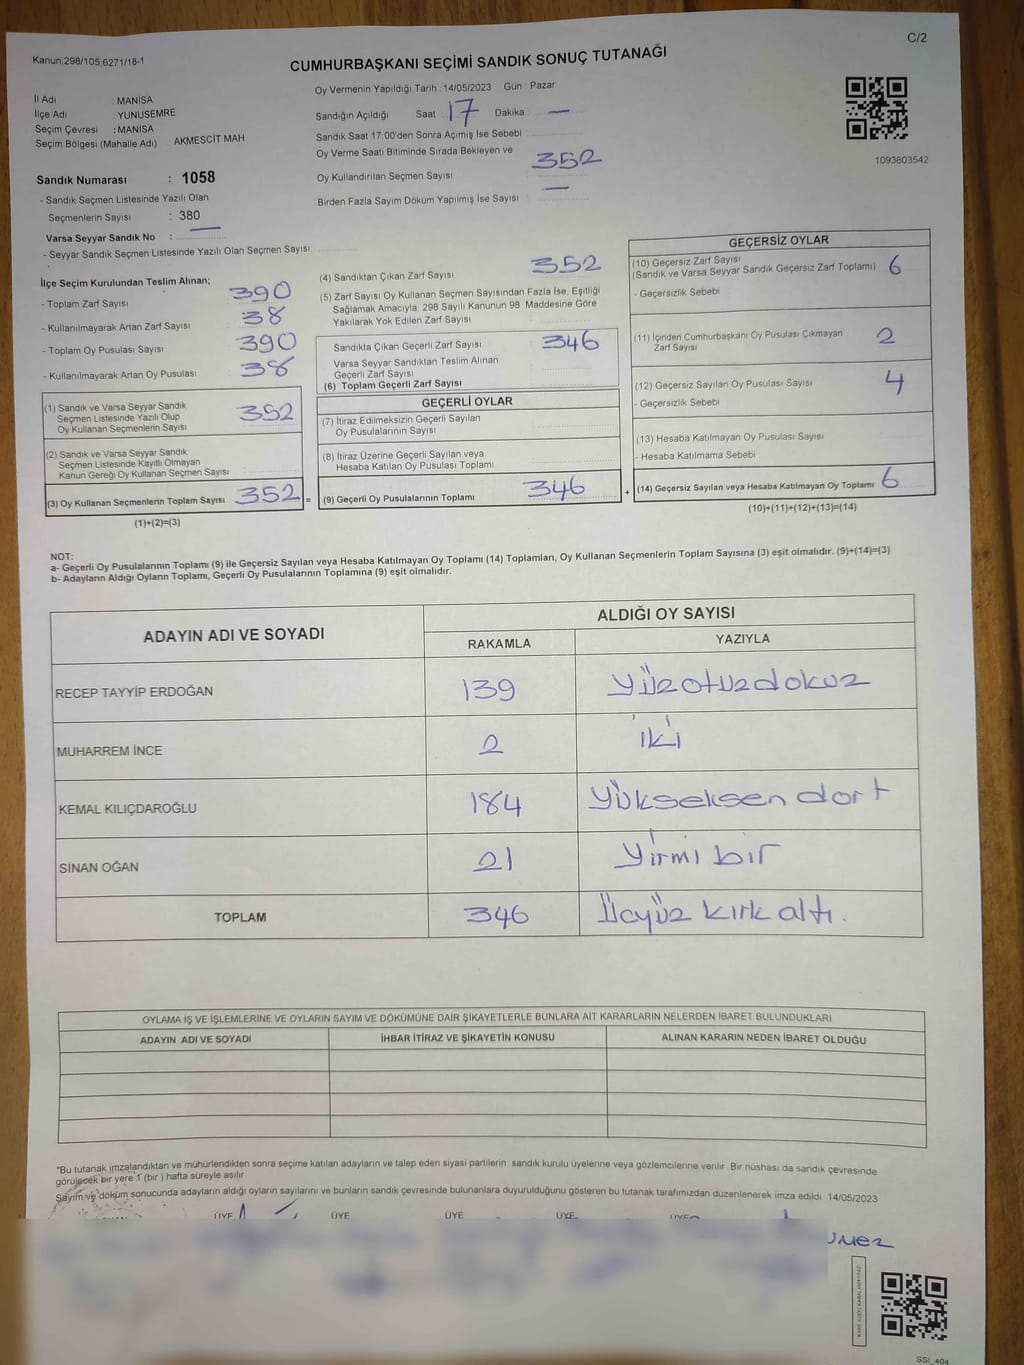 C/2
Kanun:298/105;6271/18-1
CUMHURBAŞKANI SEÇİMİ SANDIK SONUÇ TUTANAĞI
İl Adı : MANİSA
İlçe Adı : YUNUSEMRE
Seçim Çevresi : MANİSA
Seçim Bölgesi (Mahalle Adı) : AKMESCİT MAH.
Sandık Numarası : 1058
- Sandık Seçmen Listesinde Yazılı Olan
Seçmenlerin Sayısı : 380
Varsa Seyyar Sandık No : —
- Seyyar Sandık Seçmen Listesinde Yazılı Olan Seçmen Sayısı:
Oy Vermenin Yapıldığı Tarih : 14/05/2023 Gün : Pazar
Sandığın Açıldığı Saat 17 Dakika —
Sandık Saat 17:00'den Sonra Açımış İse Sebebi :
Oy Verme Saati Bitiminde Sırada Bekleyen ve
Oy Kullandırılan Seçmen Sayısı : 352
Birden Fazla Sayım Döküm Yapılmış İse Sayısı : —
1093803542
İlçe Seçim Kurulundan Teslim Alınan;
- Toplam Zarf Sayısı 390
- Kullanılmayarak Artan Zarf Sayısı 38
- Toplam Oy Pusulası Sayısı 390
- Kullanılmayarak Artan Oy Pusulası 38
(1) Sandık ve Varsa Seyyar Sandık
Seçmen Listesinde Yazılı Olup
Oy Kullanan Seçmenlerin Sayısı 352
(2) Sandık ve Varsa Seyyar Sandık
Seçmen Listesinde Kayıtlı Olmayan
Kanun Gereği Oy Kullanan Seçmen Sayısı
(3) Oy Kullanan Seçmenlerin Toplam Sayısı 352 =
(1)+(2)=(3)
(4) Sandıktan Çıkan Zarf Sayısı 352
(5) Zarf Sayısı Oy Kullanan Seçmen Sayısından Fazla İse, Eşitliği
Sağlamak Amacıyla, 298 Sayılı Kanunun 98. Maddesine Göre
Yakılarak Yok Edilen Zarf Sayısı
Sandıkta Çıkan Geçerli Zarf Sayısı 346
Varsa Seyyar Sandıktan Teslim Alınan
Geçerli Zarf Sayısı
(6) Toplam Geçerli Zarf Sayısı
GEÇERLİ OYLAR
(7) İtiraz Edilmeksizin Geçerli Sayılan
Oy Pusulalarının Sayısı
(8) İtiraz Üzerine Geçerli Sayılan veya
Hesaba Katılan Oy Pusulası Toplamı
(9) Geçerli Oy Pusulalarının Toplamı 346 +
GEÇERSİZ OYLAR
(10) Geçersiz Zarf Sayısı
(Sandık ve Varsa Seyyar Sandık Geçersiz Zarf Toplamı) 6
- Geçersizlik Sebebi
(11) İçinden Cumhurbaşkanı Oy Pusulası Çıkmayan
Zarf Sayısı 2
(12) Geçersiz Sayılan Oy Pusulası Sayısı 4
- Geçersizlik Sebebi
(13) Hesaba Katılmayan Oy Pusulası Sayısı
- Hesaba Katılmama Sebebi
(14) Geçersiz Sayılan veya Hesaba Katılmayan Oy Toplamı 6
(10)+(11)+(12)+(13)=(14)
NOT:
a- Geçerli Oy Pusulalarının Toplamı (9) ile Geçersiz Sayılan veya Hesaba Katılmayan Oy Toplamı (14) Toplamları, Oy Kullanan Seçmenlerin Toplam Sayısına (3) eşit olmalıdır. (9)+(14)=(3)
b- Adayların Aldığı Oyların Toplamı, Geçerli Oy Pusulalarının Toplamına (9) eşit olmalıdır.
ADAYIN ADI VE SOYADI ALDIĞI OY SAYISI
RAKAMLA YAZIYLA
RECEP TAYYİP ERDOĞAN 139 Yüzotuzdokuz
MUHARREM İNCE 2 iki
KEMAL KILIÇDAROĞLU 184 Yükseksen dort
SİNAN OĞAN 21 Yirmi bir
TOPLAM 346 Üçyüz kırk altı.
OYLAMA İŞ VE İŞLEMLERİNE VE OYLARIN SAYIM VE DÖKÜMÜNE DAİR ŞİKAYETLERLE BUNLARA AİT KARARLARIN NELERDEN İBARET BULUNDUKLARI
ADAYIN ADI VE SOYADI İHBAR İTİRAZ VE ŞİKAYETİN KONUSU ALINAN KARARIN NEDEN İBARET OLDUĞU
*Bu tutanak imzalandıktan ve mühürlendikten sonra seçime katılan adayların ve talep eden siyasi partilerin sandık kurulu üyelerine veya gözlemcilerine verilir. Bir nüshası da sandık çevresinde
görülecek bir yere 1 (bir) hafta süreyle asılır.
Sayım ve döküm sonucunda adayların aldığı oyların sayılarını ve bunların sandık çevresinde bulunanlara duyurulduğunu gösteren bu tutanak tarafımızdan düzenlenerek imza edildi. 14/05/2023
ÜYE ÜYE ÜYE ÜYE ÜYE
SSI_404